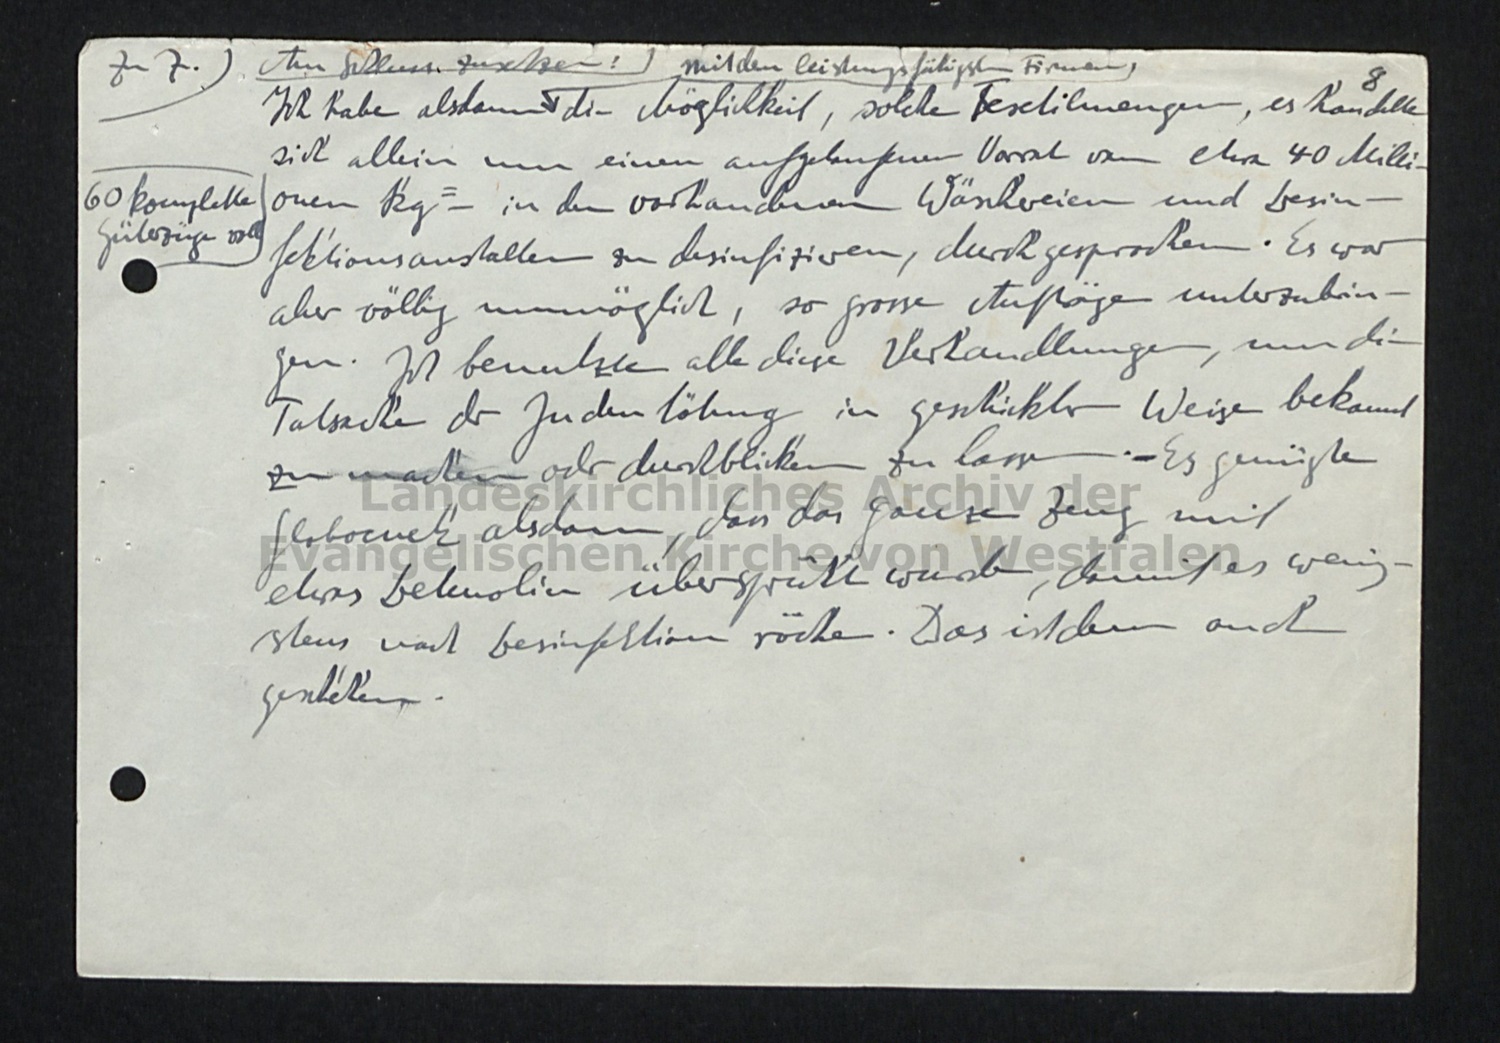 Zu 7.) Am Schluss zusetzen:) mit den leistungsfähigsten Firmen,
8
Ich habe alsdann die Möglichkeit, solche Textilmengen, es handelte
sich allein um einen aufgelaufenen Vorrat von etwa 40 Milli-
60 komplette
Güterzüge voll
onen kg = - in den vorhandenen Wäschereien und Desin-
fektionsanstalten zu desinfizieren, durchgesprochen. Es war
aber völlig unmöglich, so grosse Aufträge unterzubrin-
gen. Ich benutzte alle diese Verhandlungen, um die
Tatsache der Judentötung in geschickter Weise bekannt
zu machen oder durchblicken zu lassen. - Es genügte
Globocnek alsdann, dass das ganze Zeug mit
etwas Detmolin übersprüht wurde, damit es wenig-
stens nach Desinfektion röche. Das ist dann auch
geschehen.
Landeskirchliches Archiv der
Evangelischen Kirche von Westfalen